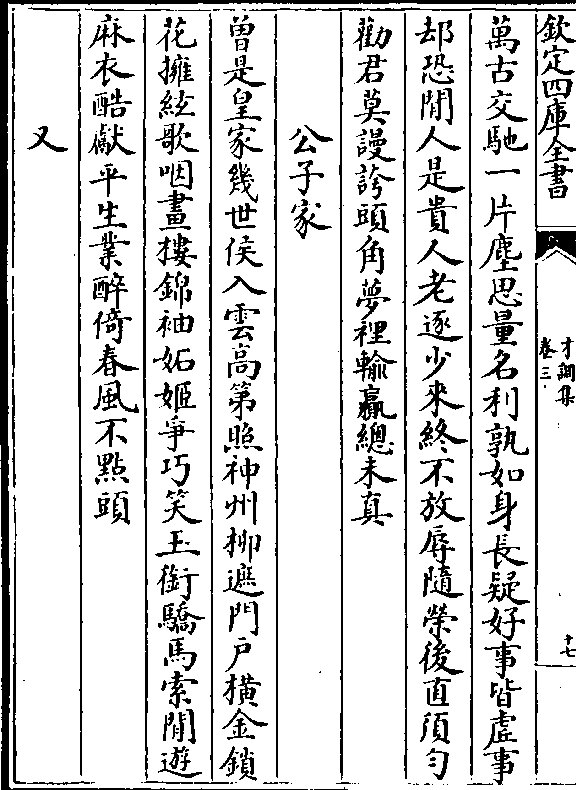 欽定四庫全書
才調集
卷三
十七
萬古交馳一片塵思量名利孰如身長疑好事皆虛事
却恐閒人是貴人老逐少來終不放辱隨榮後直須勻
勸君莫謾誇頭角夢裡輸贏總未真
公子家
曽是皇家幾世侯入雲高第照神州柳遮門戸橫金鎖
花擁絃歌咽畫摟錦袖妬姬爭巧笑玉銜驕馬索閒遊
麻衣酷獻平生業醉倚春風不點頭
又